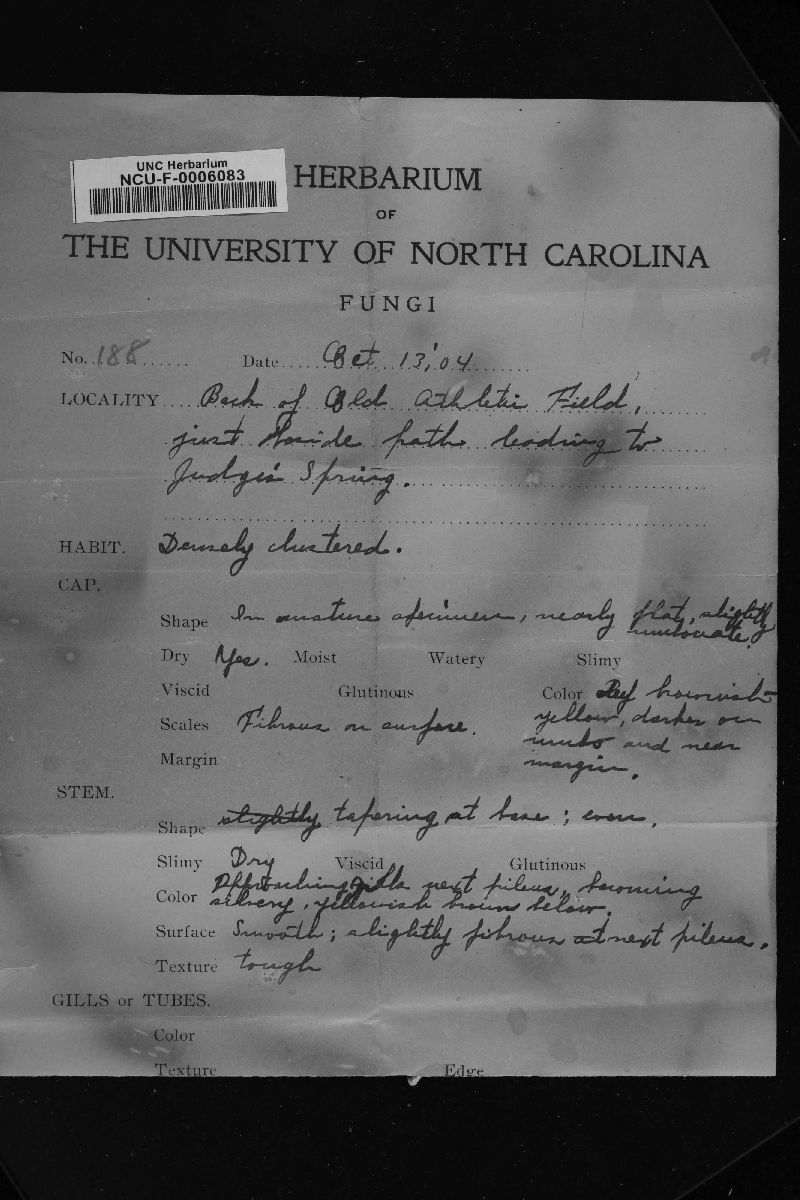 UNC Herbarium
NCU-F-0006083
HERBARIUM
OF
THE UNIVERSITY OF NORTH CAROLINA
FUNGI
No. 188 Date Oct 13, '04
LOCALITY Back of Old Athletic Field,
just beside path leading to
Judge's Spring.
HABIT. Densely clustered.
CAP.
Shape In mature specimen, nearly flat, slightly
umbonate.
Dry Yes. Moist Watery Slimy
Viscid Glutinous Color brownish-
Scales Fibrous on surface. yellow, darker on
umbo and near
Margin margin.
STEM.
Shape slightly tapering at base; even.
Slimy Dry Viscid Glutinous
Approaching gills next pileus, becoming
Color silvery, yellowish brown below.
Surface Smooth; slightly fibrous at next pileus.
Texture tough
GILLS or TUBES.
Color
Texture Edge